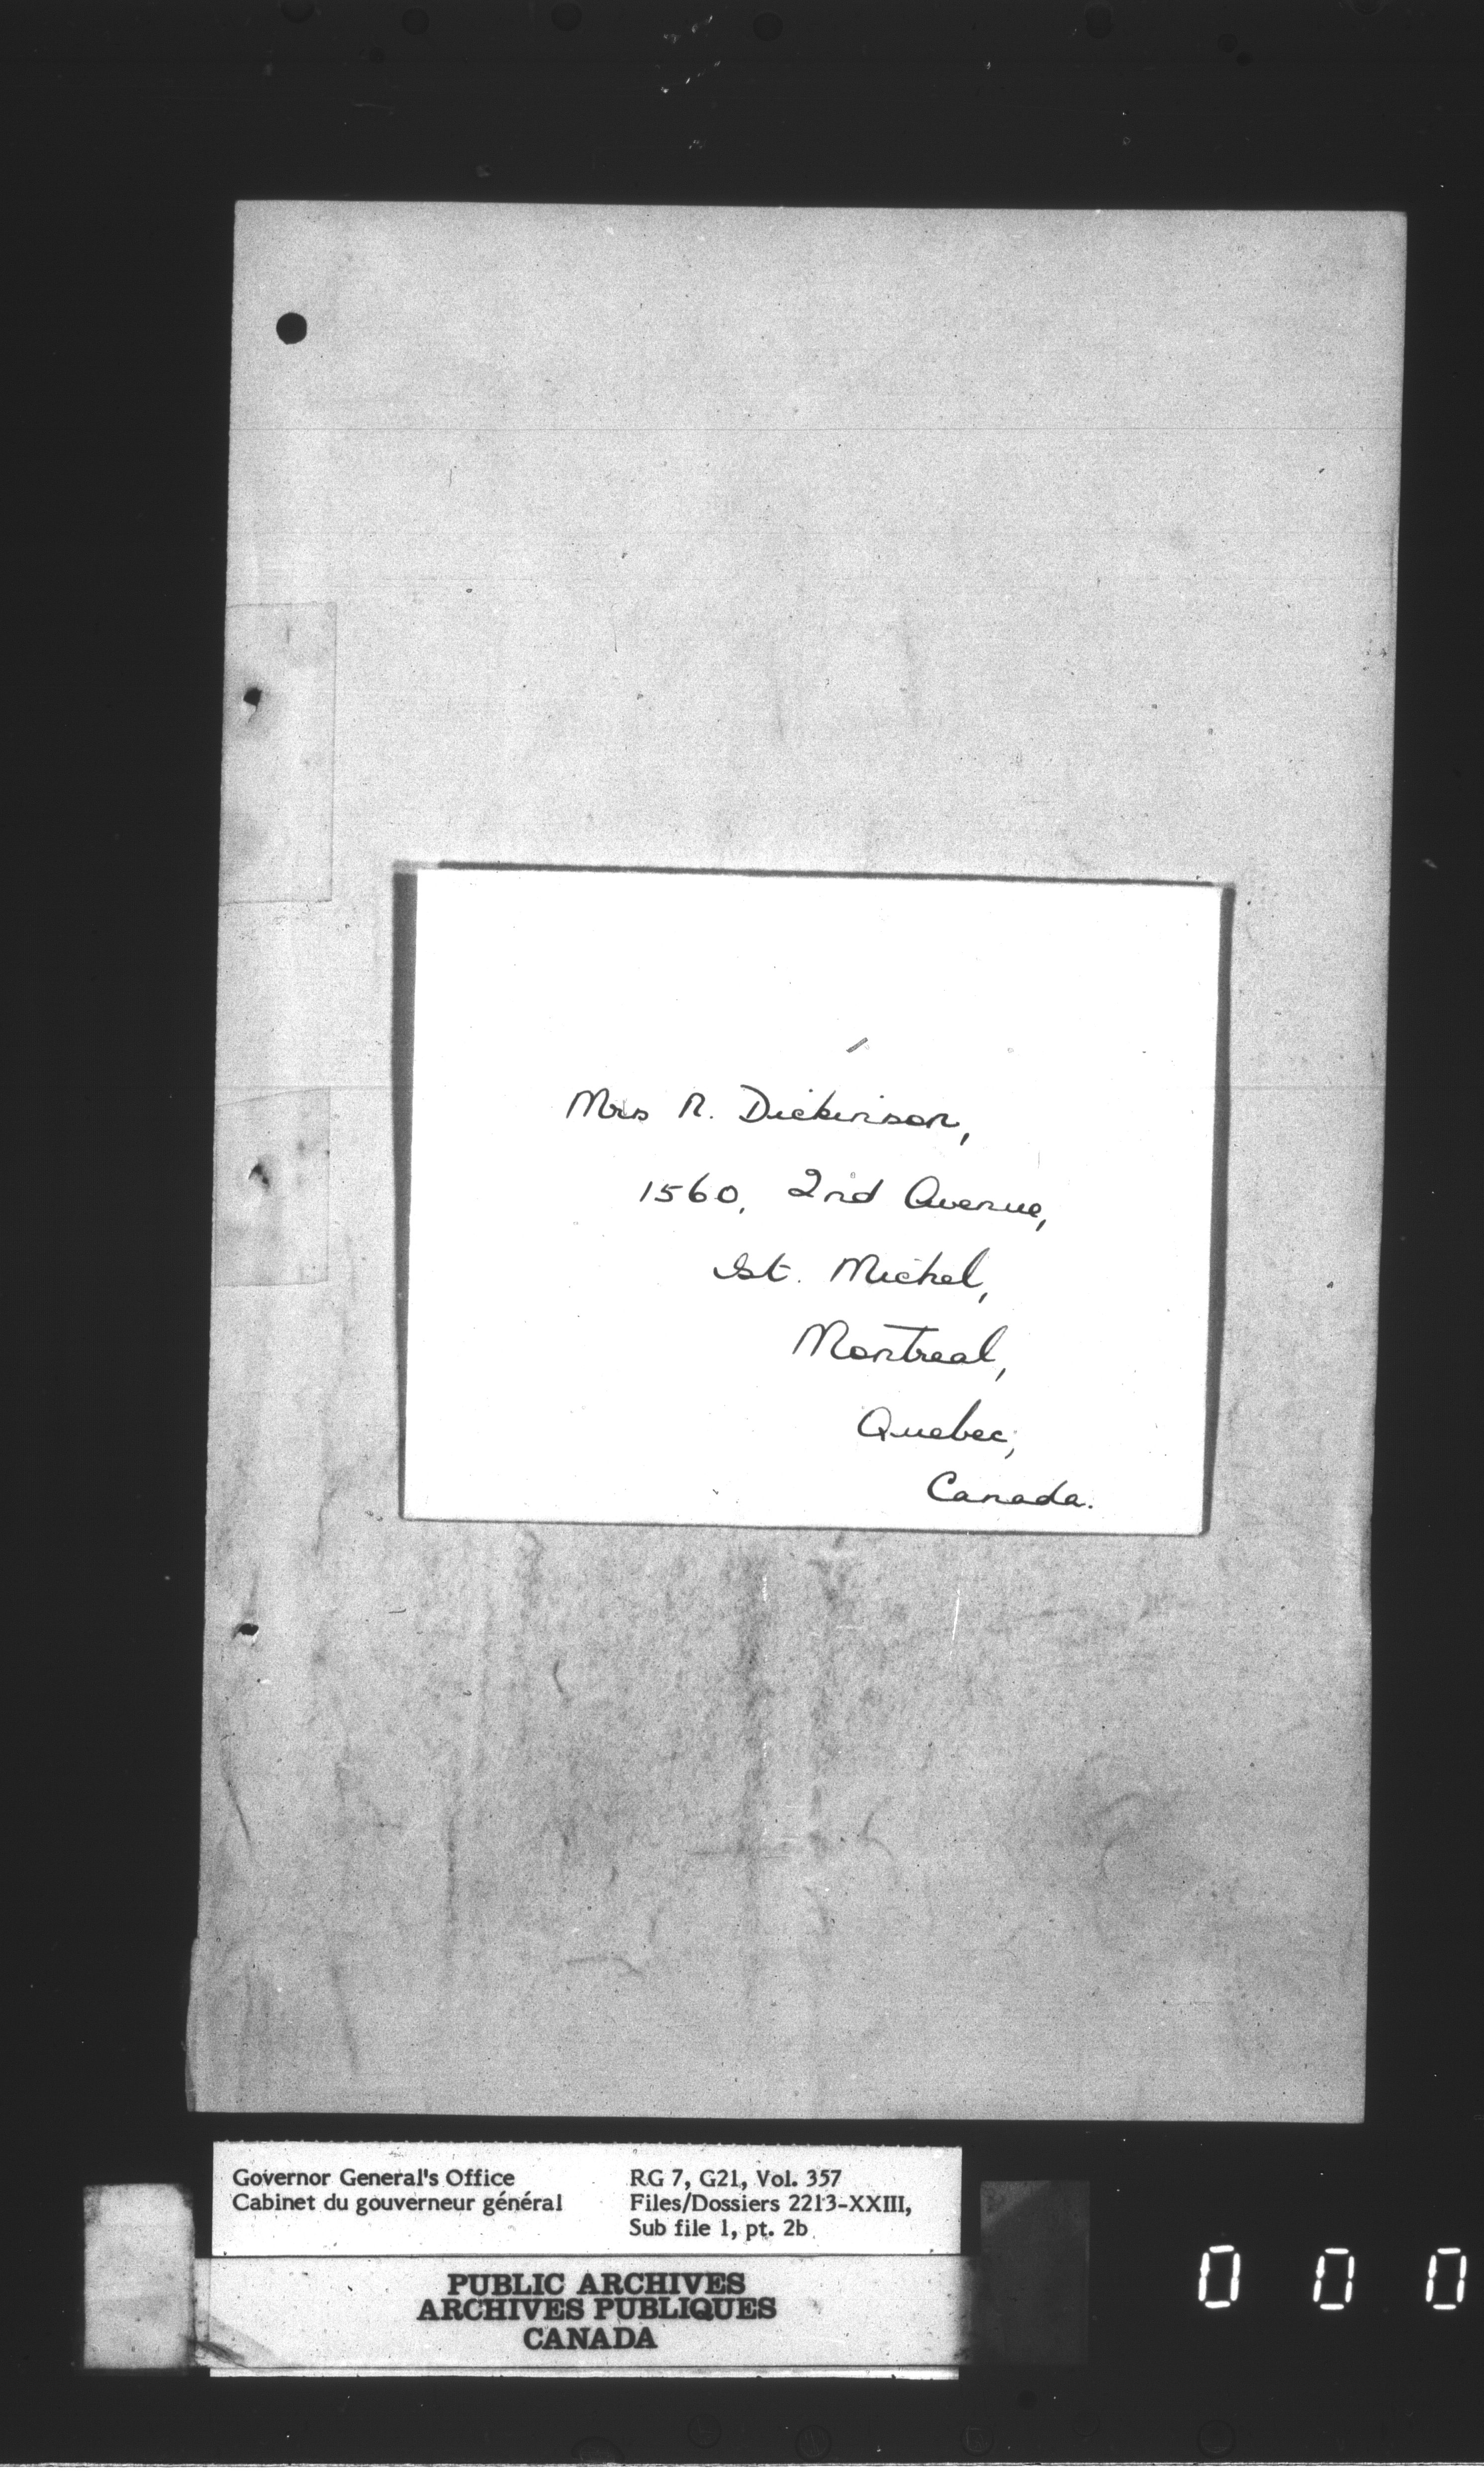 Mrs R. Dickinson,
1560, 2nd Avenue,
St. Michel,
Montreal,
Quebec,
Canada.
Governor General's Office
Cabinet du gouverneur général
RG 7, G21, Vol. 357
Files/Dossiers 2213-XXIII,
Sub file 1, pt. 2b
PUBLIC ARCHIVES
ARCHIVES PUBLIQUES
CANADA
0 0 0